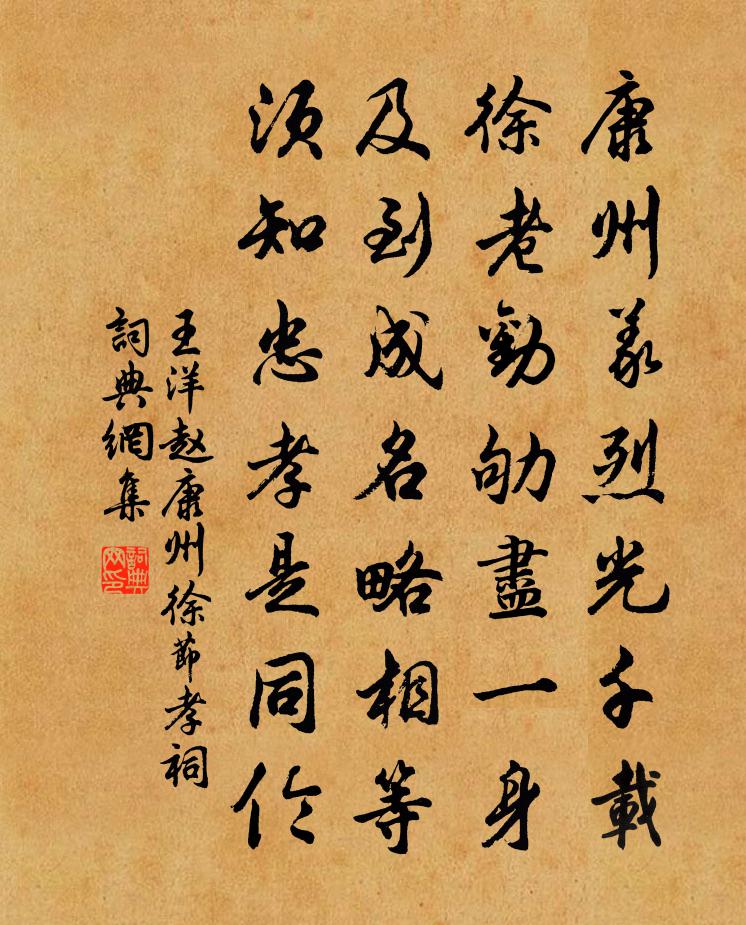 康州義烈光千載
徐老勤劬盡一身
及到成名略相等
須知忠孝是同伦
王洋赵康州徐節孝祠
詞典網集
詞典
网印